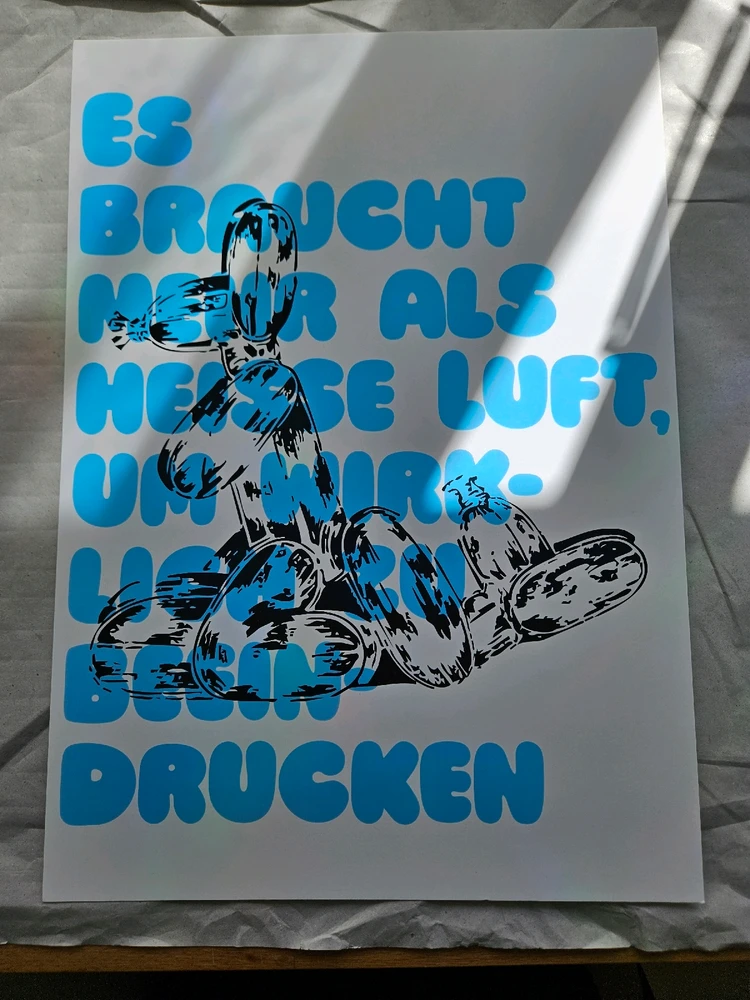 ES
BRAUCHT
MEHR ALS
HEISSE LUFT,
UM WIRK-
LICH ZU
BEEIN-
DRUCKEN